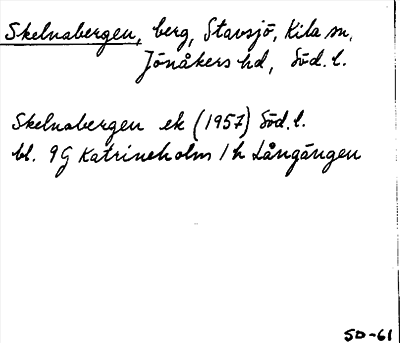 Skelnabergen, berg, Stavsjö, Kila sn,
Jönåkers hd, Söd. l.
Skelnabergen ek (1957) Söd. l.
bl. 9G Katrineholm 1h Långängen
SD-61